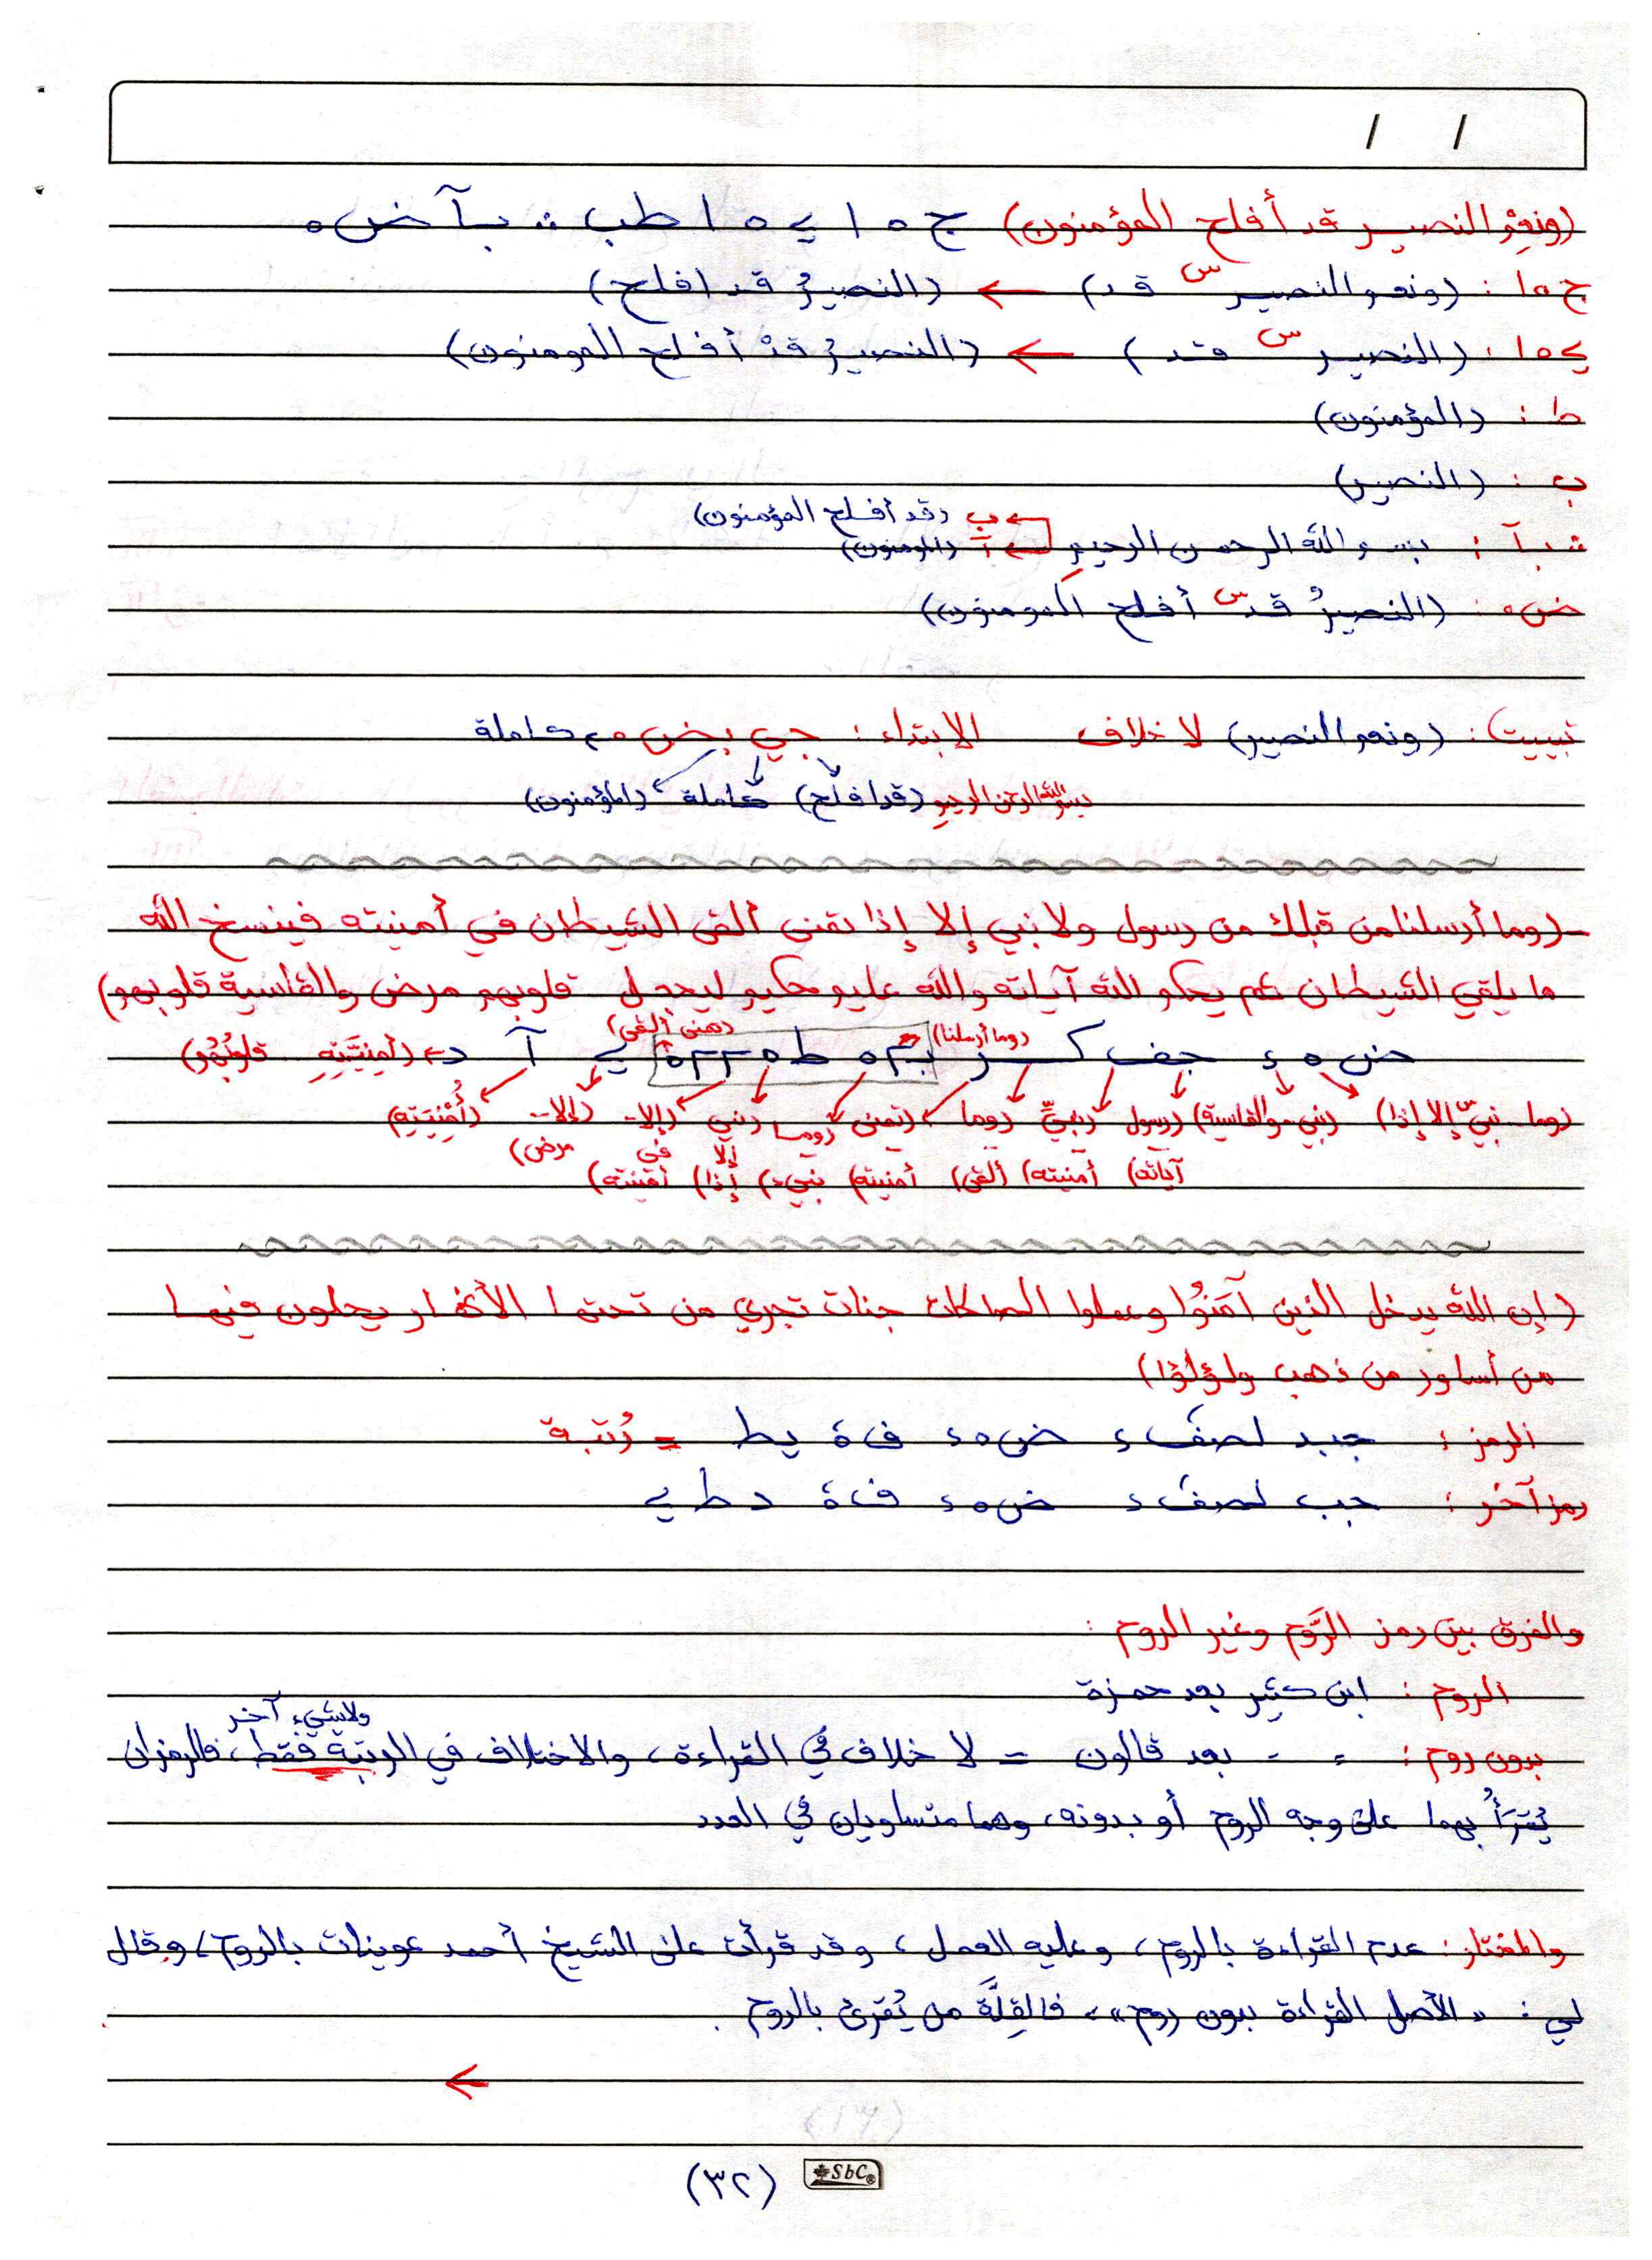 / /
(ونعم النصير قد أفلح المؤمنون) ج ه ا ي ه ا طب ث بآ ض ه
ج ه ا : (ونعم النصير س قد) ← (النصيرُ قد افلح)
ي ه ا : (النصير س قد) ← (النصيرُ قدْ أفلح المومنون)
ط : (المؤمنون)
ب : (النصير)
← ب (قد أفلح المؤمنون)
ث بآ : بسم الله الرحمن الرحيم ← آ (المومنون)
ض ه : (النصيرُ قد س أفلح المومنون)
تبييت : (ونعم النصير) لا خلاف الابتداء : جي بض ه م كاملة
بسم الله الرحمن الرحيم (قد افلح) كاملة (المؤمنون)
(وما أرسلنا من قبلك من رسول ولا نبي إلا إذا تمنى ألقى الشيطان في أمنيته فينسخ الله
ما يلقي الشيطان ثم يحكم الله آياته والله عليم حكيم ليجعل قلوبهم مرض والقاسية قلوبهم)
(وما أرسلنا) (تمنى ألقى)
ض ه ء جف ك ي آ د ← (أمنيَّتِهِ قلوبُهُم)
(وما نبي س إلا إذا) (نبي والقاسية) (رسول (نبيٍّ (وما (تمنى (وما (نبي (إلا (إلا (أُمْنِيَتِهِ)
آياته) أمنيته) ألقى) أمنيته) نبيء) إلا إذا) في أمنيته) مرض)
(إن الله يدخل الذين آمَنُوا وعملوا الصالحات جنات تجري من تحتها الأنهار يحلون فيها
من أساور من ذهب ولؤلؤا)
الرمز : جبد لصفك ء ض ه ء ف ة يط = رُتبة
رمز آخر : جب لصفك ء ض ه ء ف ة د ط ي
والفرق بين رمز الرَّوم وغير الروم :
الروم : ابن كثير بعد حمزة
ولا شيء آخر
بدون روم : = = بعد قالون = لا خلاف في القراءة، والاختلاف في الرتبة فقط، فالرمزان
يُقرَأُ بهما على وجه الروم أو بدونه، وهما متساويان في العدد
والمختار : عدم القراءة بالروم، وعليه العمل، وقد قرأت على الشيخ أحمد عوينات بالروم، وقال
لي : « الأصل القراءة بدون روم »، فالقِلَّة من يُقرئ بالروم .
←
SbC®
(٣٢)